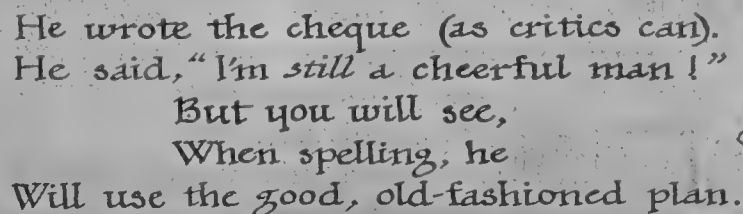 He wrote the cheque (as critics can).
He said, "I'm still a cheerful man!"
But you will see,
When spelling, he
Will use the good, old-fashioned plan.